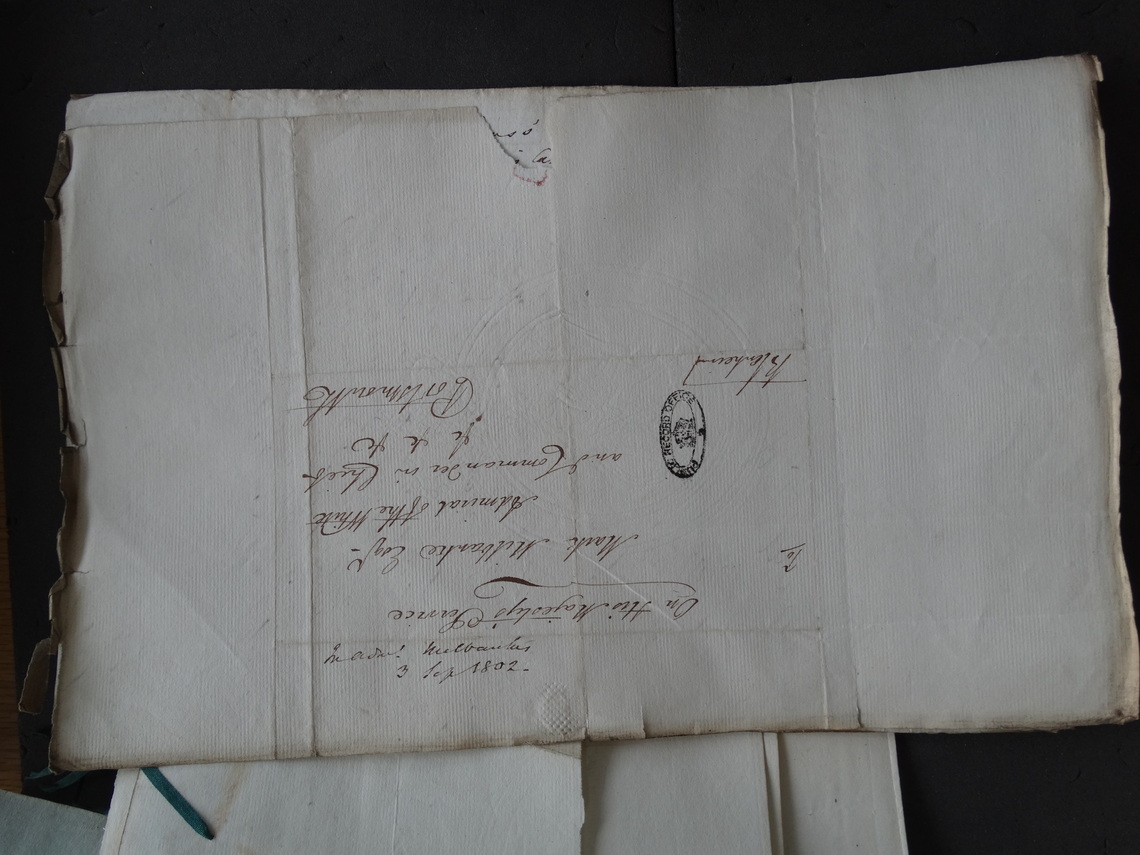 In Adml. Milbanke's
3 Sep. 1802.
On His Majesty's Service
To
Mark Milbanke Esqr.
Admiral of the White
and Commander in Chief
&c &c &c
Portsmouth
Blenheim
PUBLIC RECORD OFFICE